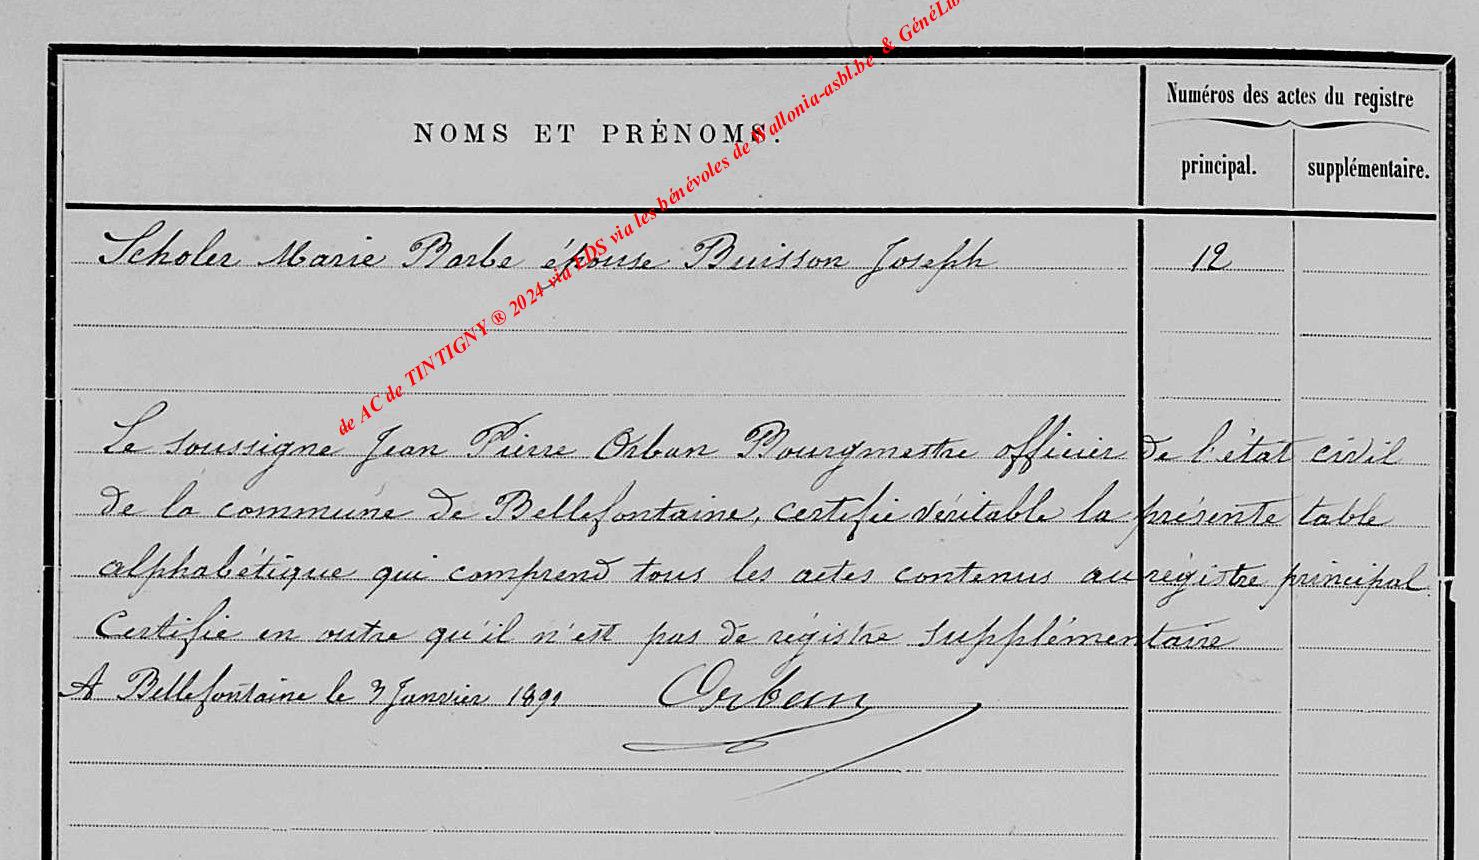 Numéros des actes du registre
NOMS ET PRÉNOMS.
principal. supplémentaire.
Scholer Marie Barbe épouse Buisson Joseph 12
Le soussigne Jean Pierre Orban Bourgmestre officier de l'état civil
de la commune de Bellefontaine, certifie véritable la présente table
alphabétique qui comprend tous les actes contenus au régistre principal.
Certifie en outre qu'il n'est pas de régistre supplémentaire
A Bellefontaine le 3 Janvier
Orban
de AC de TINTIGNY ® 2024 via LDS via les bénévoles de Wallonia-asbl.be & GénéLib